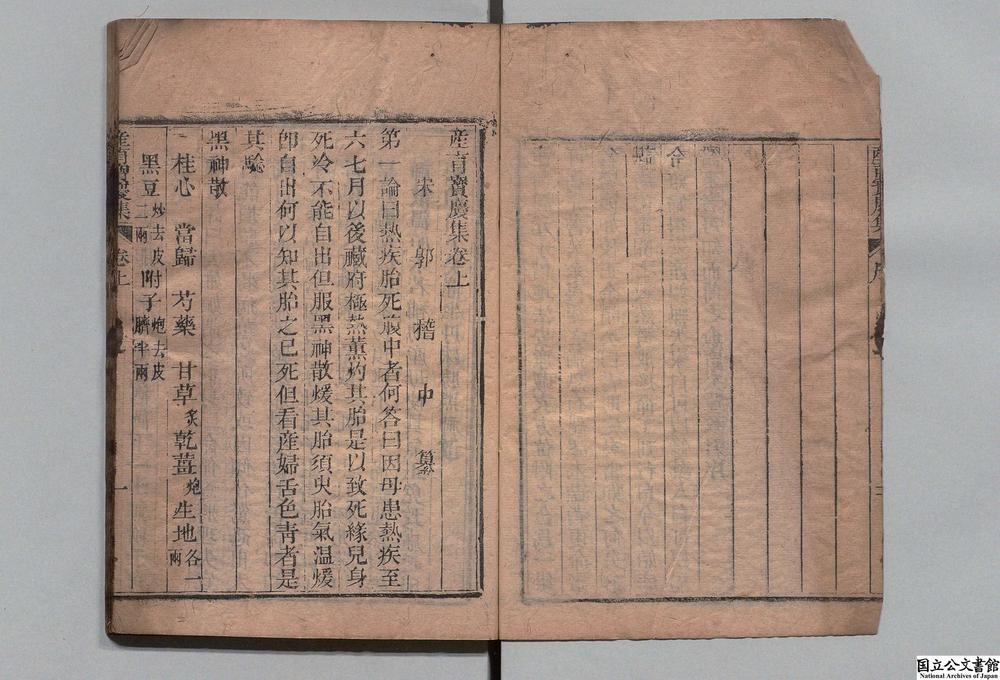 産育寶慶集卷上
宋 郭 稽 中 纂
第一論曰熱疾胎死腹中者何答曰因母患熱疾至
六七月以後藏府極熱薰灼其胎是以致死緣兒身
死冷不能自出但服黑神散煖其胎須臾胎氣温煖
即自出何以知其胎之已死但看産婦舌色青者是
其驗
黑神散
桂心 當歸 芍藥 甘草炙 乾薑炮 生地各一兩
黑豆炒去皮二兩 附子炮去皮臍半兩
産育寶慶集 卷上 一
国立公文書館
National Archives of Japan